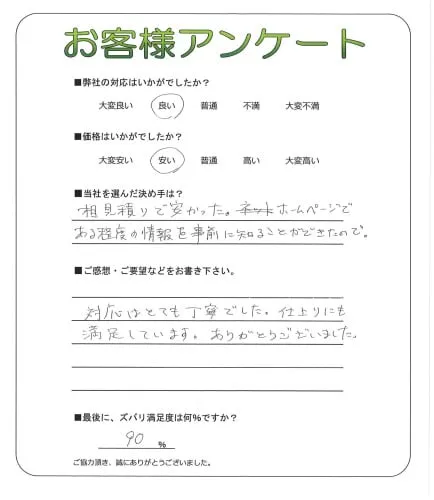 お客様アンケート
■弊社の対応はいかがでしたか？
大変良い 良い 普通 不満 大変不満
■価格はいかがでしたか？
大変安い 安い 普通 高い 大変高い
■当社を選んだ決め手は？
相見積りで安かった。ネットホームページで
ある程度の情報を事前に知ることができたので。
■ご感想・ご要望などをお書き下さい。
対応はとても丁寧でした。仕上りにも
満足しています。ありがとうございました。
■最後に、ズバリ満足度は何％ですか？
90 %
ご協力頂き、誠にありがとうございました。